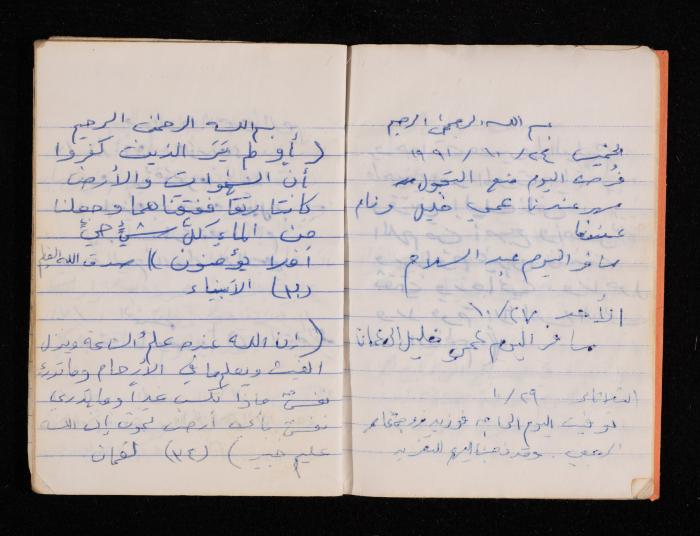 بسم الله الرحمن الرحيم
الخميس ٢٤ / ١٠ / ١٩٩١
فُرض اليوم منع التجول
سهر عندنا عمي خليل ونام
عندنا
سافر اليوم عبد السلام
الأحد ٢٧ / ١٠
سافر اليوم عمي خليل
الثلاثاء ٢٩ / ١٠
توفيت اليوم الحاجة
وقدمنا اليهم التعزية
بسم الله الرحمن الرحيم
( أو لم يَرَ الذين كفروا
أن السموات والأرض
كانتا رتقا ففتقناهما وجعلنا
من الماء كلَّ شيءٍ حيٍّ
أفلا يؤمنون )) صدق الله العظيم
(٣٠) الأنبياء
( إن الله عنده علمُ الساعة وينزل
الغيث ويعلم ما في الأرحام وما تدري
نفسٌ ماذا تكسب غداً وما تدري
نفسٌ بأي أرض تموت إن الله
عليم خبير ) (٣٤) لقمان